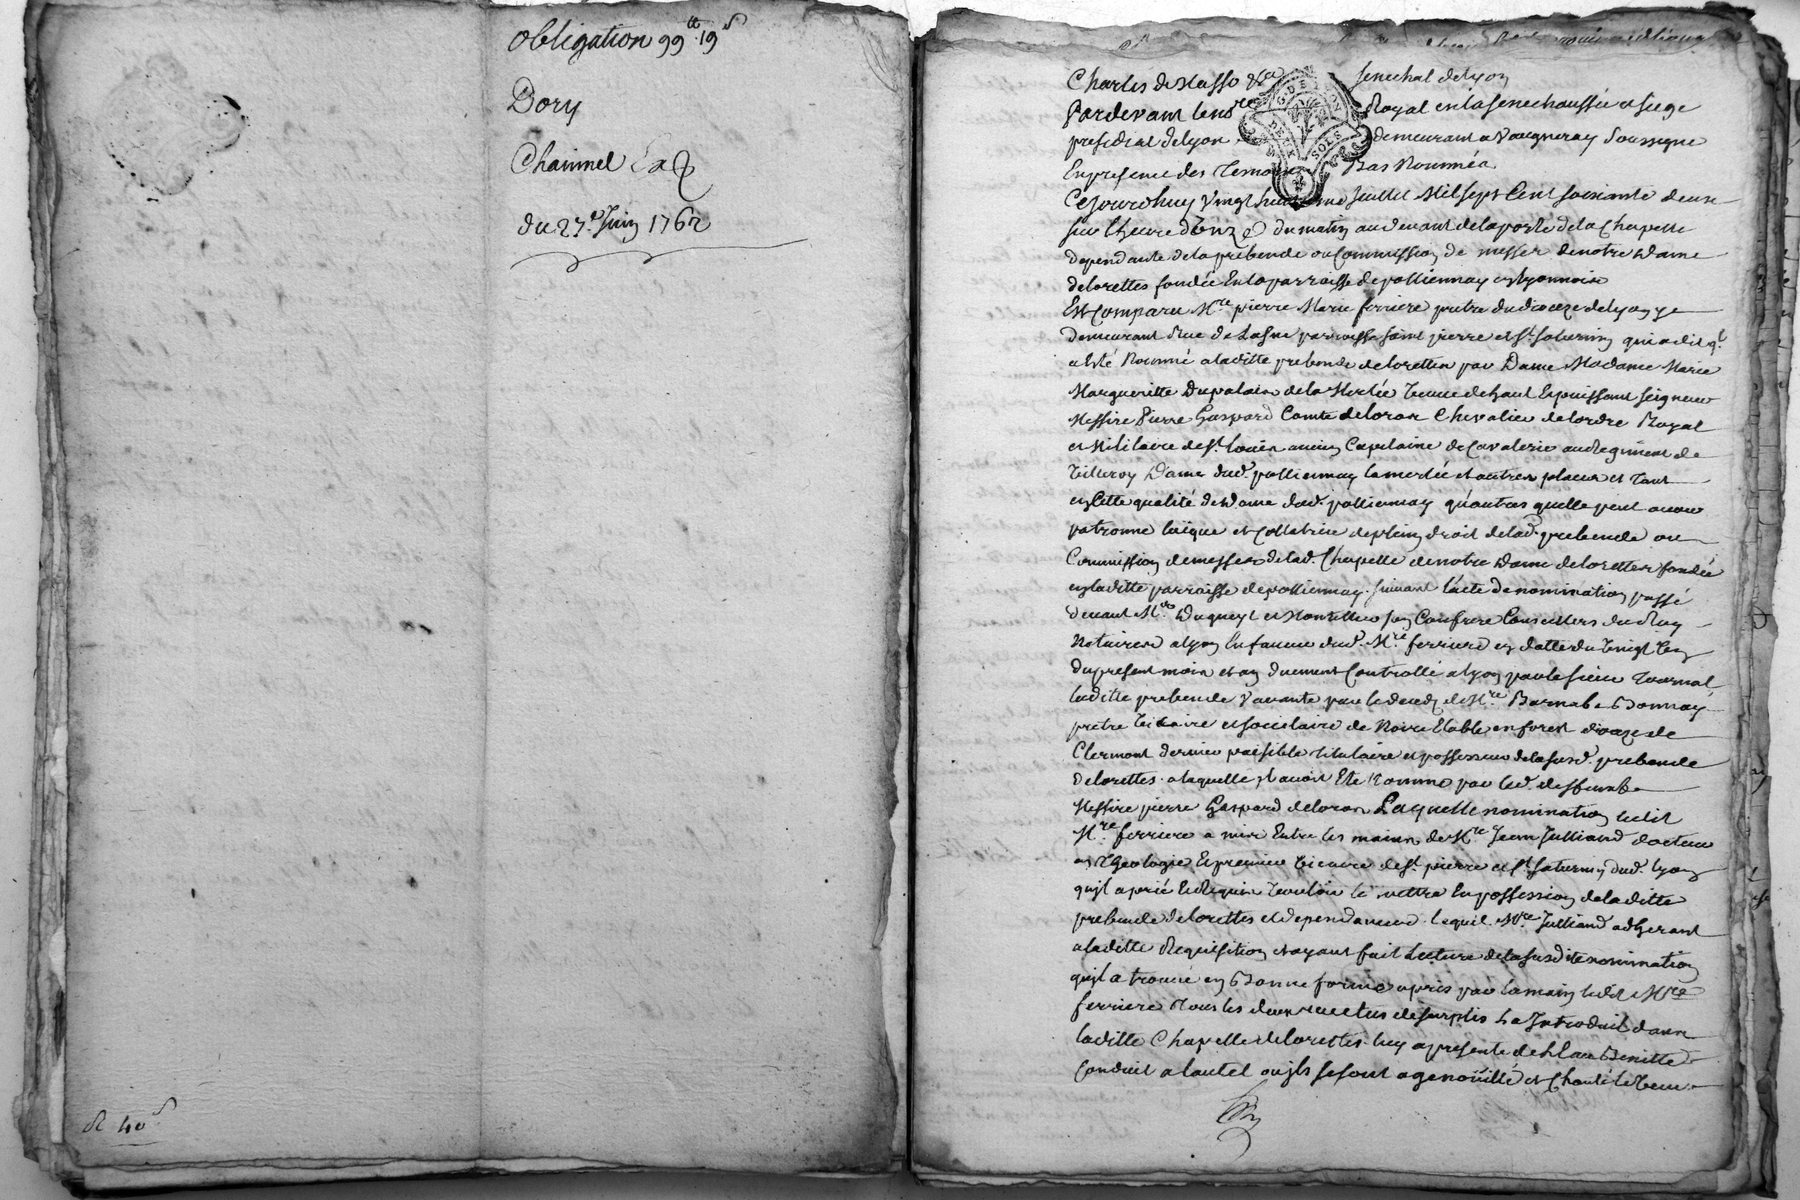 obligation 99lt 19s
Dory
Chainnel
du 27e Juin 1762
R 40s
Charles de Masso senechal de lyon
Pardevant le no.re Royal en la senechaussée et siege
presidial de lyon demeurant a Vaugneray soussigne
En presence des Temoins Bas Nommés
Cejourdhuy Vingt huitieme Juillet Mil sept Cent soixante deux
sur lheure d'onze du matin au devant de la porte de la Chapelle
dependante de la prebende ou Commission de messes de notre Dame
de lorettes fondée En la parroisse de pollionnay en lyonnois
Est Comparu Mre pierre Marie ferriere pretre du dioceze de lyon y
demeurant Rue de Lasne parroisse saint pierre et st saturnin qui a dit q.l
a Esté Nommé a laditte prebende de lorettes par Dame Madame Marie
Margueritte Dupalais de la Merlée Veuve de haut Et puissant seigneur
Messire Pierre Gaspard Comte de loras Chevalier de lordre Royal
et Militaire de st. louis ancien Capitaine de Cavalerie au Regiment de
Villeroy Dame dud. pollionnay lamerlée et autres places et Tant
en Cette qualité de Dame dud. pollionnay qu'autres quelle peut avoir
patronne laïque et Collatrice de plein droit de lad. prebende ou
Commission de messes de lad. Chapelle de notre Dame de lorettes fondée
en laditte parroisse de pollionnay. suivant l'acte de nomination passé
devant Mes Dugueyt et son Confrere Conseillers du Roy
Notaires a lyon En faveur dud. Mre. ferriere en datte du Vingt
du present mois et an duement Controllé a lyon par le sieur Tournal,
laditte prebende Vacante par le decez de Mre Barnabé Donnay
pretre Vicaire et societaire de Noire Etable en forest dioceze de
Clermont dernier paisible titulaire et possesseur de la susd. prebende
de lorettes a laquelle il avoit Eté Nommé par led. deffunt
Messire pierre Gaspard de loras Laquelle nomination ledit
Mre ferriere a mise Entre les mains de Mre Jean Julliard docteur
en Theologie Et premier Vicaire de st. pierre et st. saturnin dud. lyon
qu'il a prié Et Requis Vouloir le mettre En possession de laditte
prebende de lorettes et dependances. lequel Mre. Julliard adherant
a laditte Requisition et ayant fait Lecture de la susditte nomination
qu'il a trouvé en Bonne forme a pris par la main ledit Mre
ferriere Tous les deux revetus de surplis La Introduit dans
laditte Chapelle de lorettes. luy a presenté de l'Eau Benitte
Conduit a lautel ou ils se sont agenoüillé et Chanté le Veni